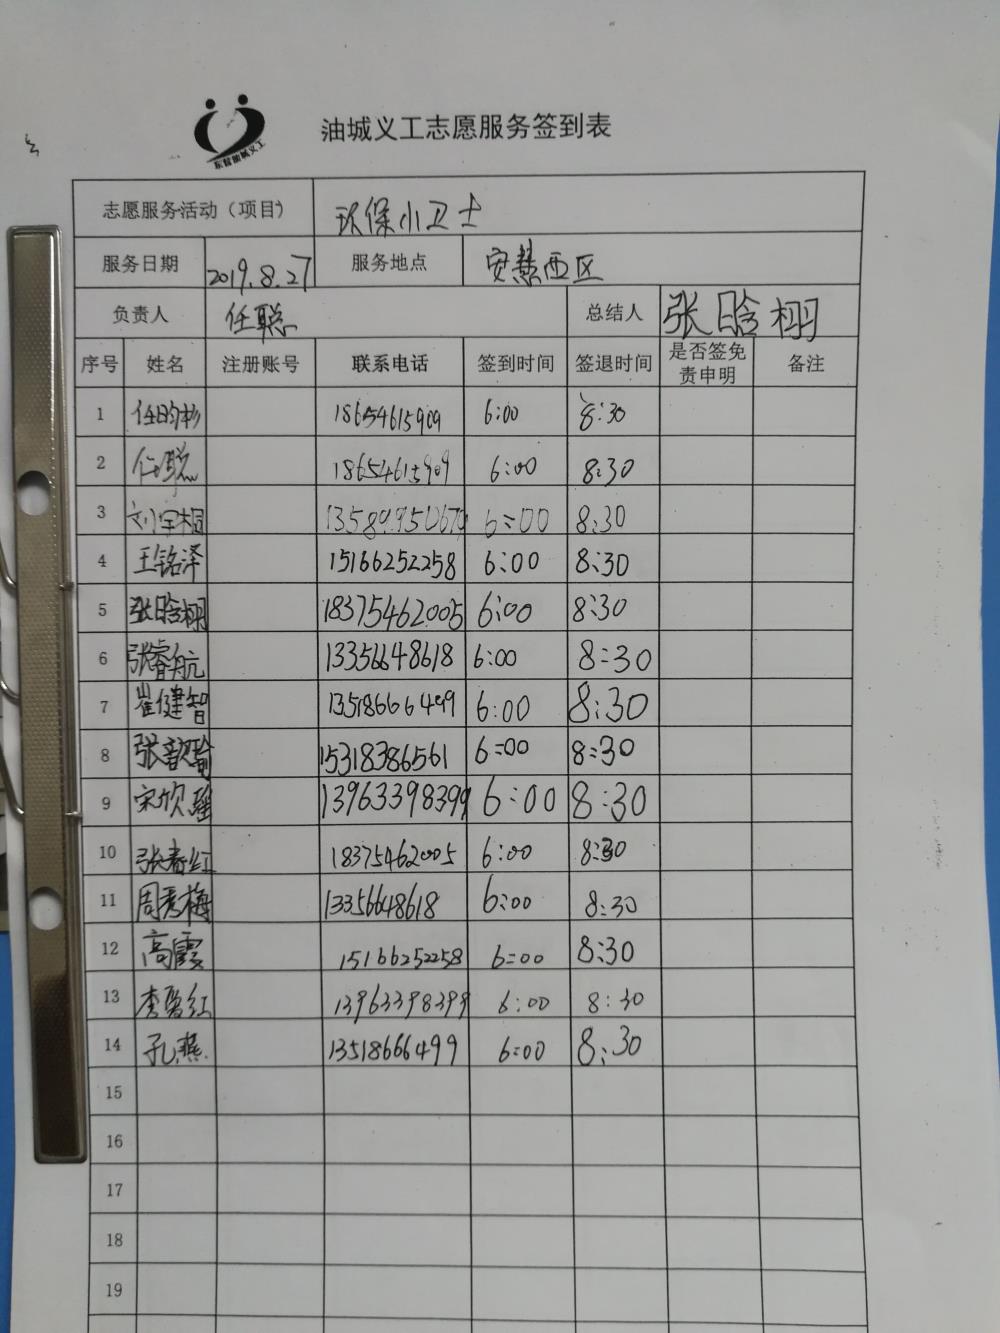 东营油城义工
油城义工志愿服务签到表
志愿服务活动（项目） 环保小卫士
服务日期 2019.8.27 服务地点 安慧西区
负责人 任聪 总结人 张晗栩
序号 姓名 注册账号 联系电话 签到时间 签退时间 是否签免责申明 备注
1 任昀杉 18654615909 6:00 8:30
2 任聪 18654615909 6:00 8:30
3 刘宇桐 13589951679 6:00 8:30
4 王铭泽 15166252258 6:00 8:30
5 张晗栩 18375462005 6:00 8:30
6 张睿航 13356648618 6:00 8:30
7 崔健智 13518666499 6:00 8:30
8 张歆瑜 15318386561 6:00 8:30
9 宋欣瑶 13963398399 6:00 8:30
10 张春红 18375462005 6:00 8:30
11 周秀梅 13356648618 6:00 8:30
12 高霞 15166252258 6:00 8:30
13 李红 13963398399 6:00 8:30
14 孔燕 13518666499 6:00 8:30
15
16
17
18
19